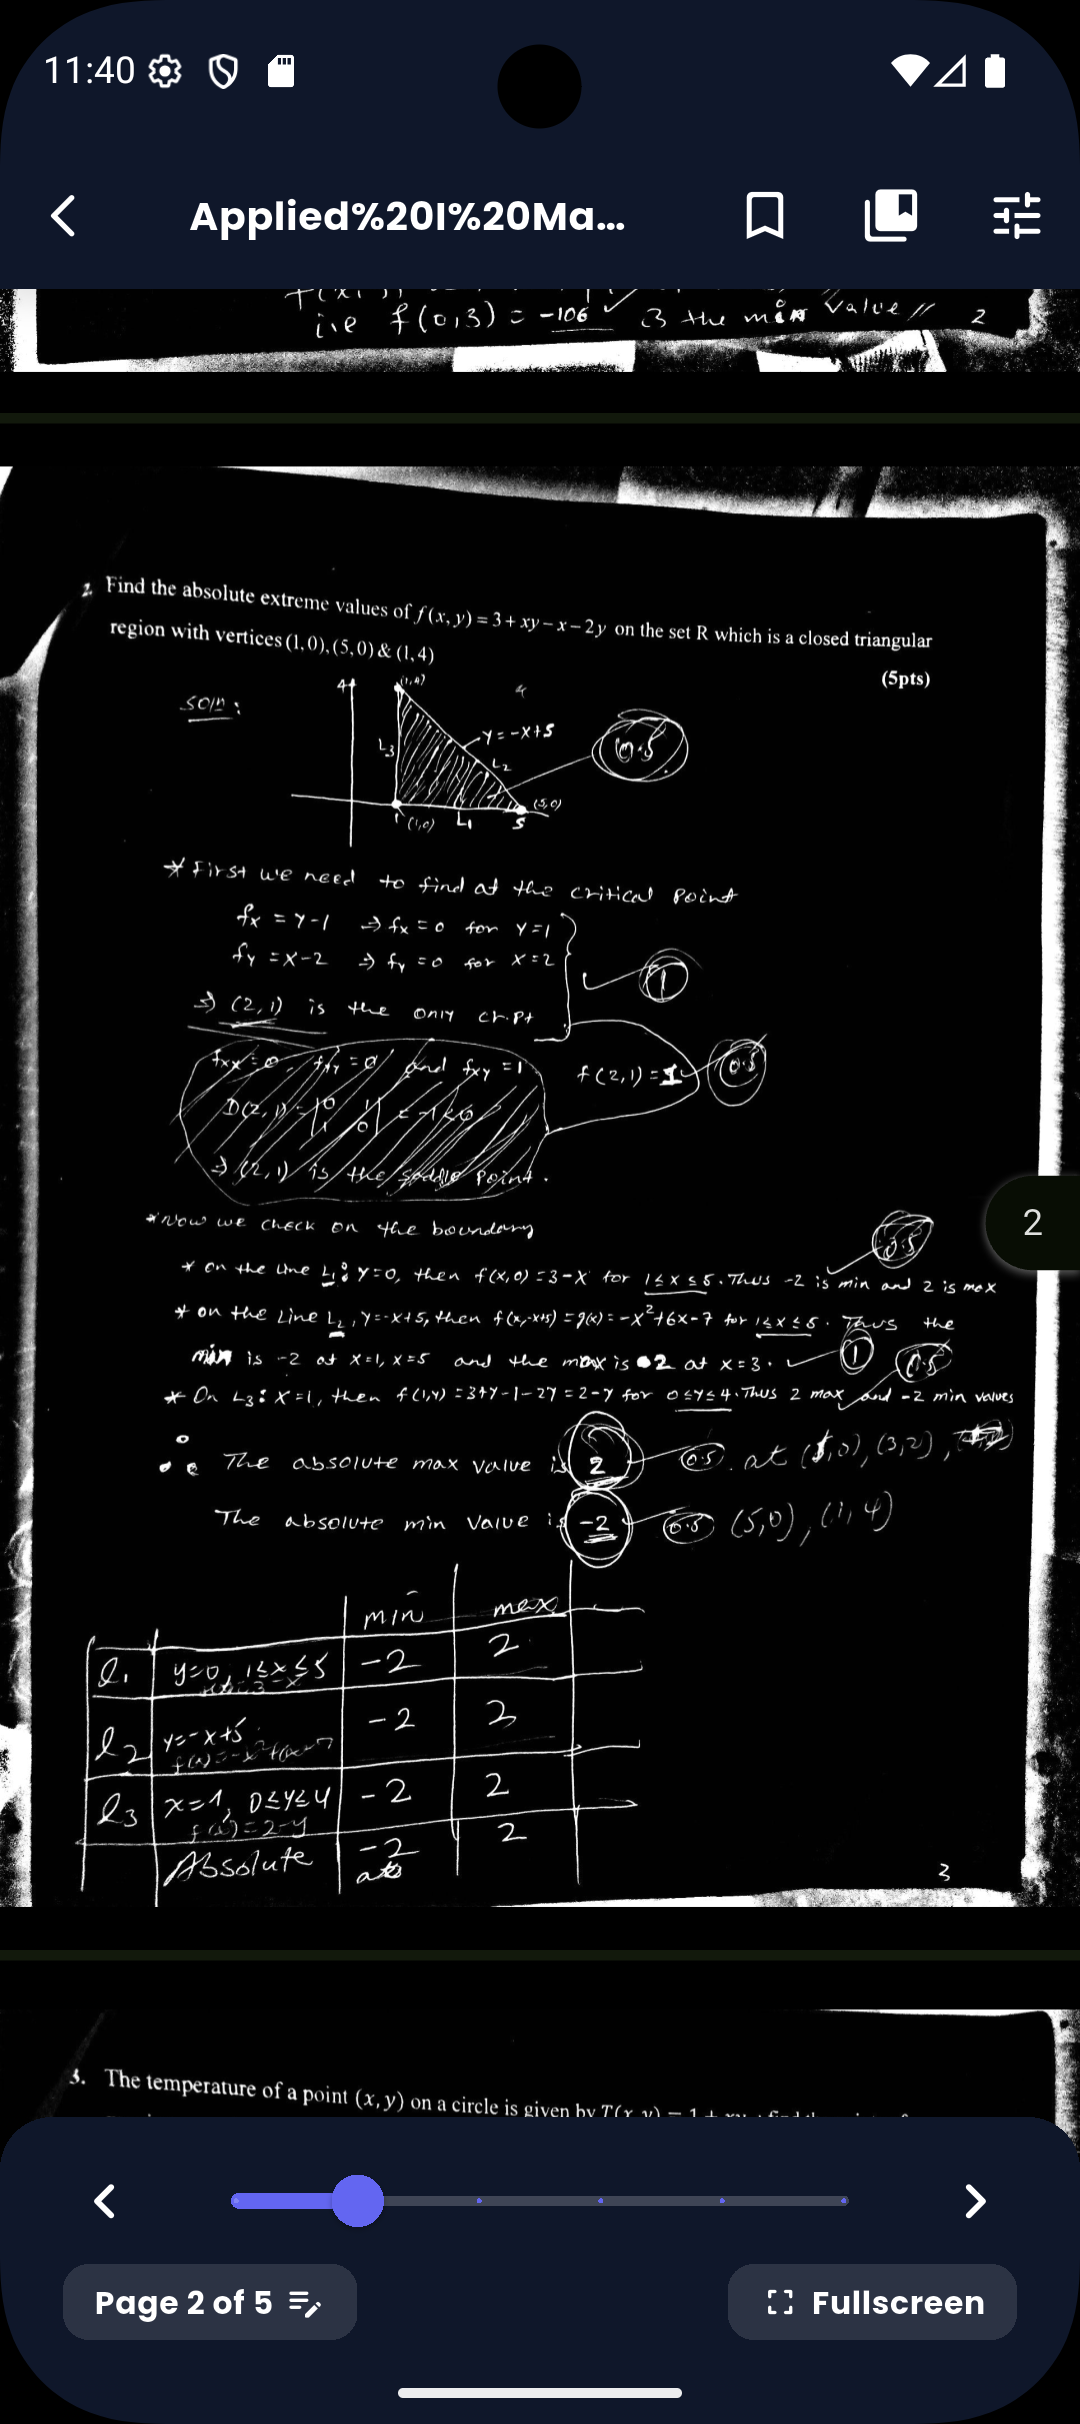 11:40
Applied%20I%20Ma...
i.e f(0,3) = -106 ✓ is the min value // 2
2. Find the absolute extreme values of f(x, y) = 3 + xy − x − 2y on the set R which is a closed triangular
region with vertices (1, 0), (5, 0) & (1, 4)
(5pts)
Soln:
4 (1,4)
y = -x+5
L3 L2
0.5
(5,0)
1 (1,0) L1 5
* First we need to find at the critical point
fx = y-1 ⇒ fx = 0 for y=1
fy = x-2 ⇒ fy = 0 for x=2
1
⇒ (2,1) is the only cr.pt
fxx = 0, fyy = 0 and fxy = 1
f(2,1) = 1 0.5
D(2,1) = |0 1 1 0| = -1 < 0
⇒ (2,1) is the saddle point.
* Now we check on the boundary
0.5
* on the line L1: y=0, then f(x,0) = 3-x for 1≤x≤5. Thus -2 is min and 2 is max
* on the line L2, y=-x+5, then f(x,-x+5) = g(x) = -x²+6x-7 for 1≤x≤5. Thus the
min is -2 at x=1, x=5 and the max is 2 at x=3. 1 0.5
* On L3: x=1, then f(1,y) = 3+y-1-2y = 2-y for 0≤y≤4. Thus 2 max and -2 min values
∴ The absolute max value is 2 0.5 at (1,0), (3,2),
The absolute min value is -2 0.5 (5,0), (1,4)
min max
l1 y=0, 1≤x≤5 -2 2
l2 y=-x+5 -2 2
l3 x=1, 0≤y≤4 -2 2
f(x)=2-y
Absolute -2 2
3
2
3. The temperature of a point (x, y) on a circle is given by T(x, y) = 1 + xy
Page 2 of 5
Fullscreen